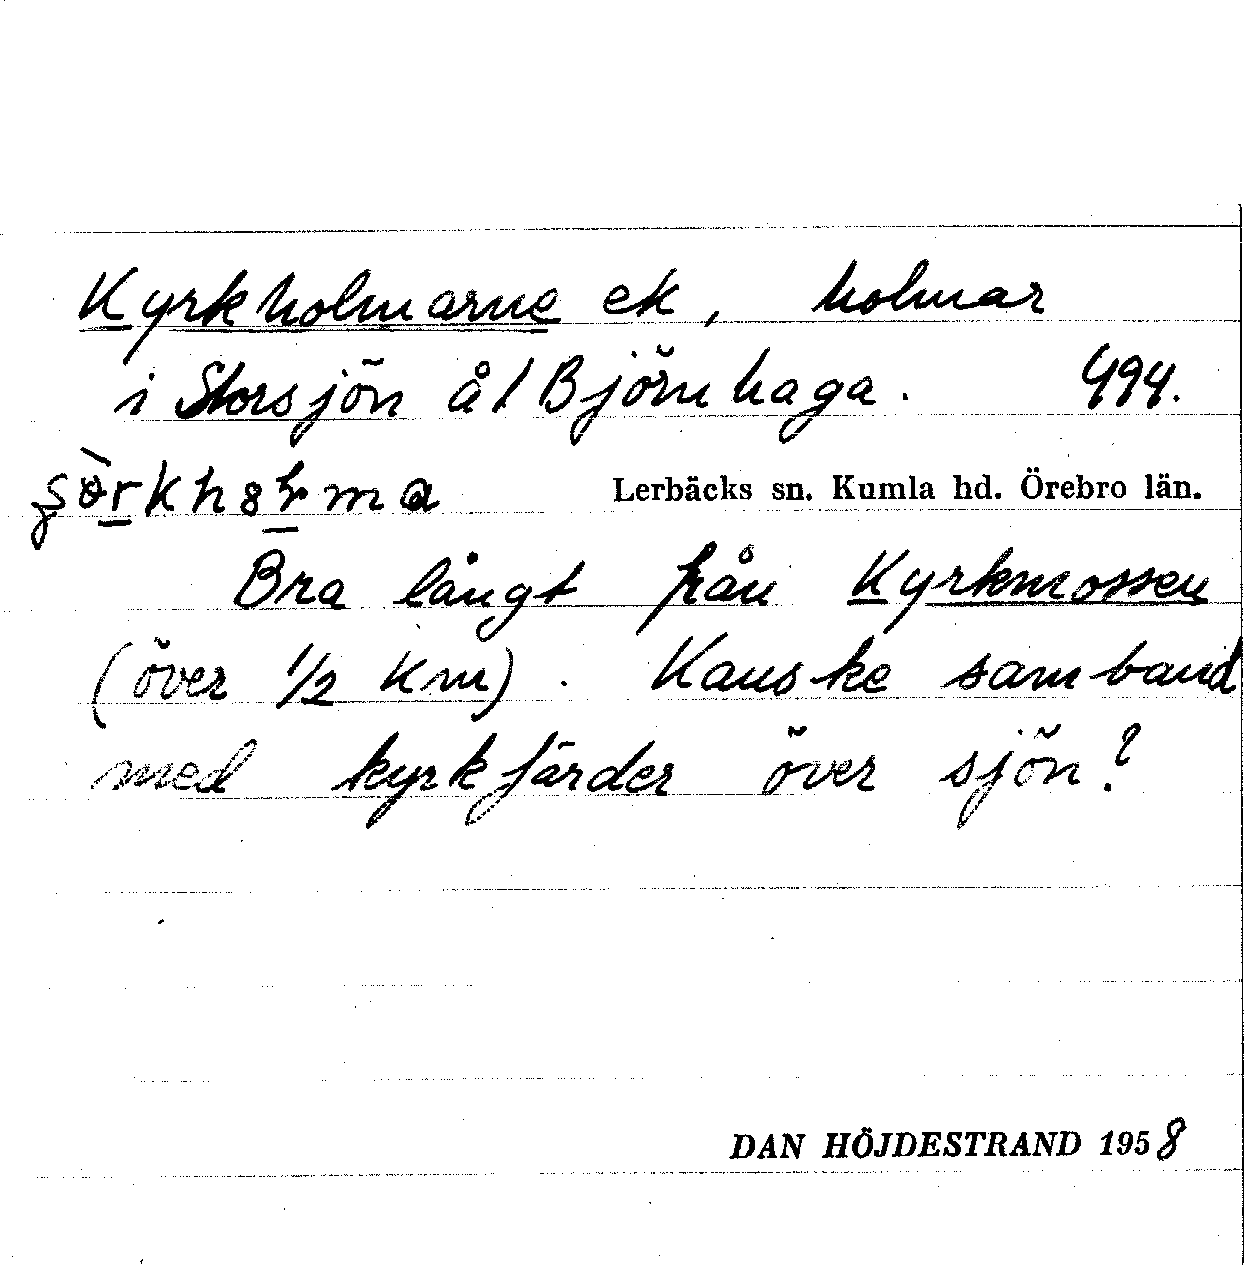 Kyrkholmarne ek, holmar
i Storsjön å/Björnhaga. 494.
Lerbäcks sn. Kumla hd. Örebro län.
Bra långt från Kyrkmossen
(över 1/2 km). Kanske samband
med kyrkfärder över sjön?
DAN HÖJDESTRAND 1958